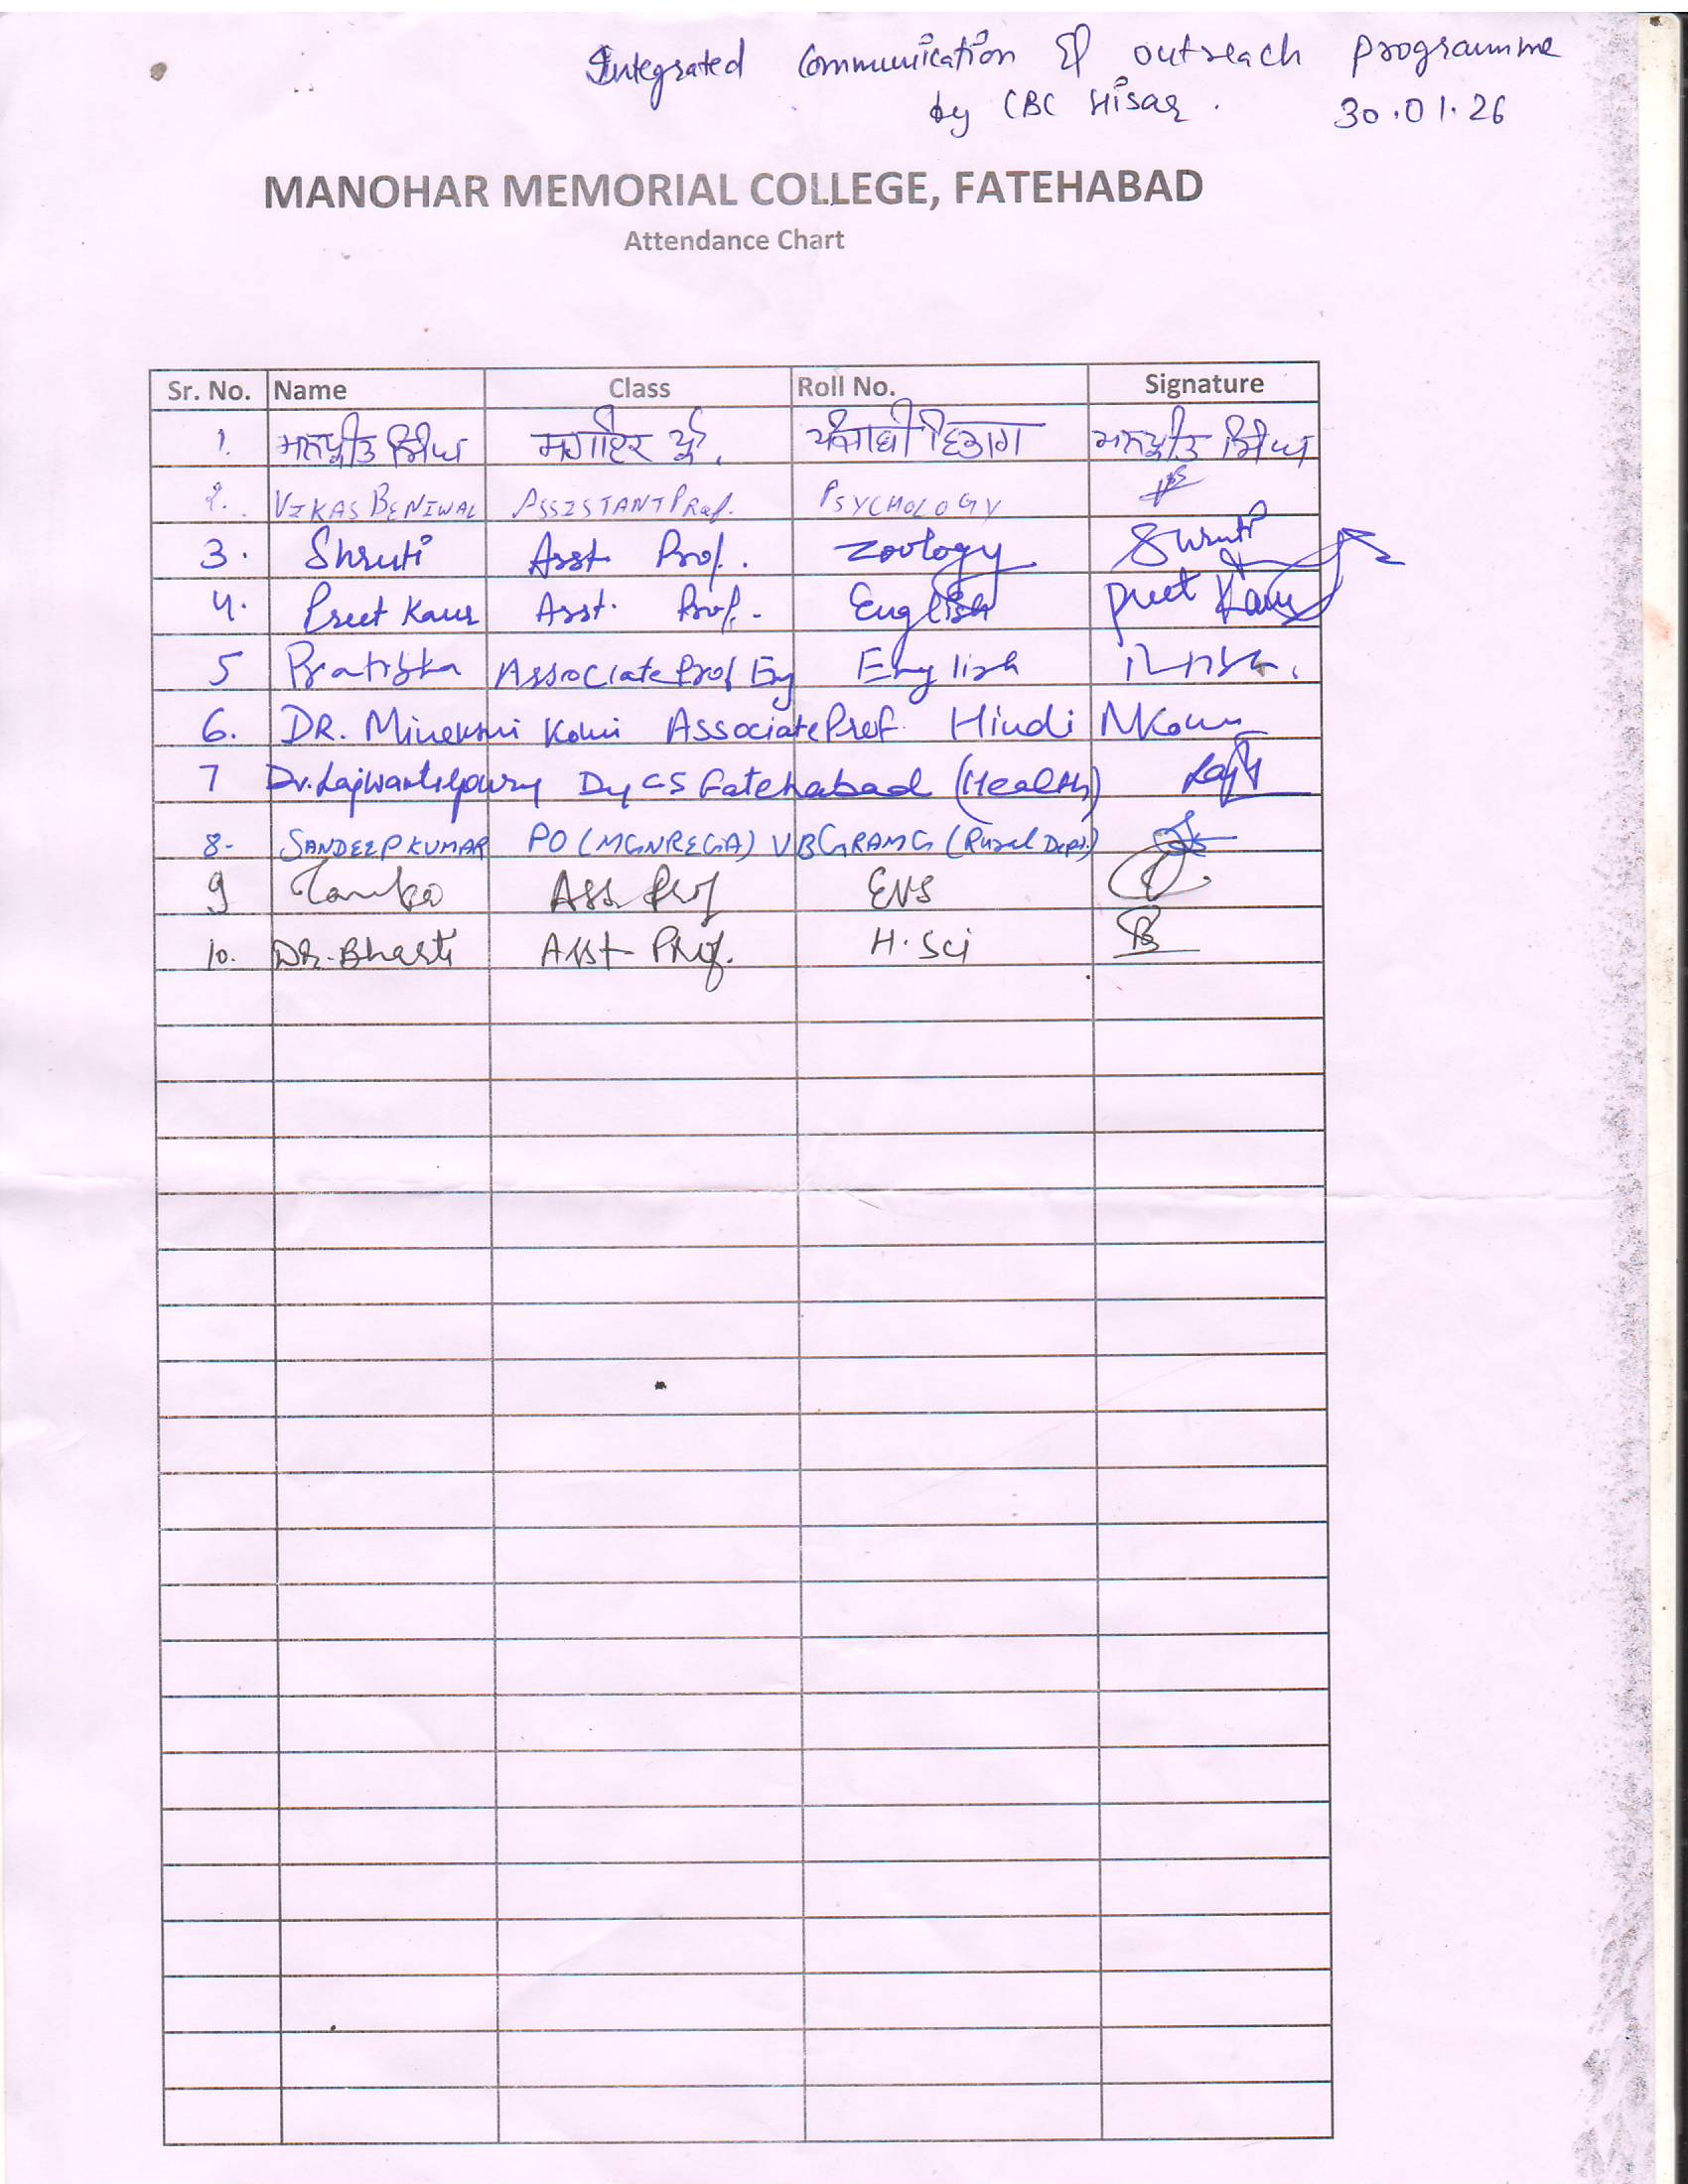 Integrated Communication & outreach programme
by CBC Hisar. 30.01.26
MANOHAR MEMORIAL COLLEGE, FATEHABAD
Attendance Chart
Sr. No. Name Class Roll No. Signature
1. ਮਨਪ੍ਰੀਤ ਸਿੰਘ ਸਹਾਇਕ ਪ੍ਰੋ. ਪੰਜਾਬੀ ਵਿਭਾਗ ਮਨਪ੍ਰੀਤ ਸਿੰਘ
2. VIKAS BENIWAL ASSISTANT Prof. PSYCHOLOGY
3. Shruti Asst Prof. Zoology Shruti
4. Preet Kaur Asst. Prof. English Preet Kaur
5 Pratibha Associate Prof Eng English
6. DR. Minakshi Associate Prof. Hindi
7 Dy CS Fatehabad (Health)
8- SANDEEP KUMAR PO (MGNREGA) VBGRAMG (Rural Dept.)
9 Ass. Prof ENS
10. DR. Bharti Asst Prof. H.Sci